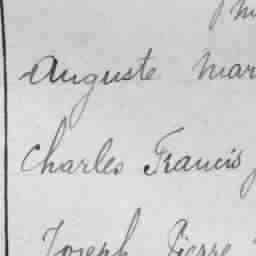 Auguste Mar
Charles Francis
Joseph Pierre